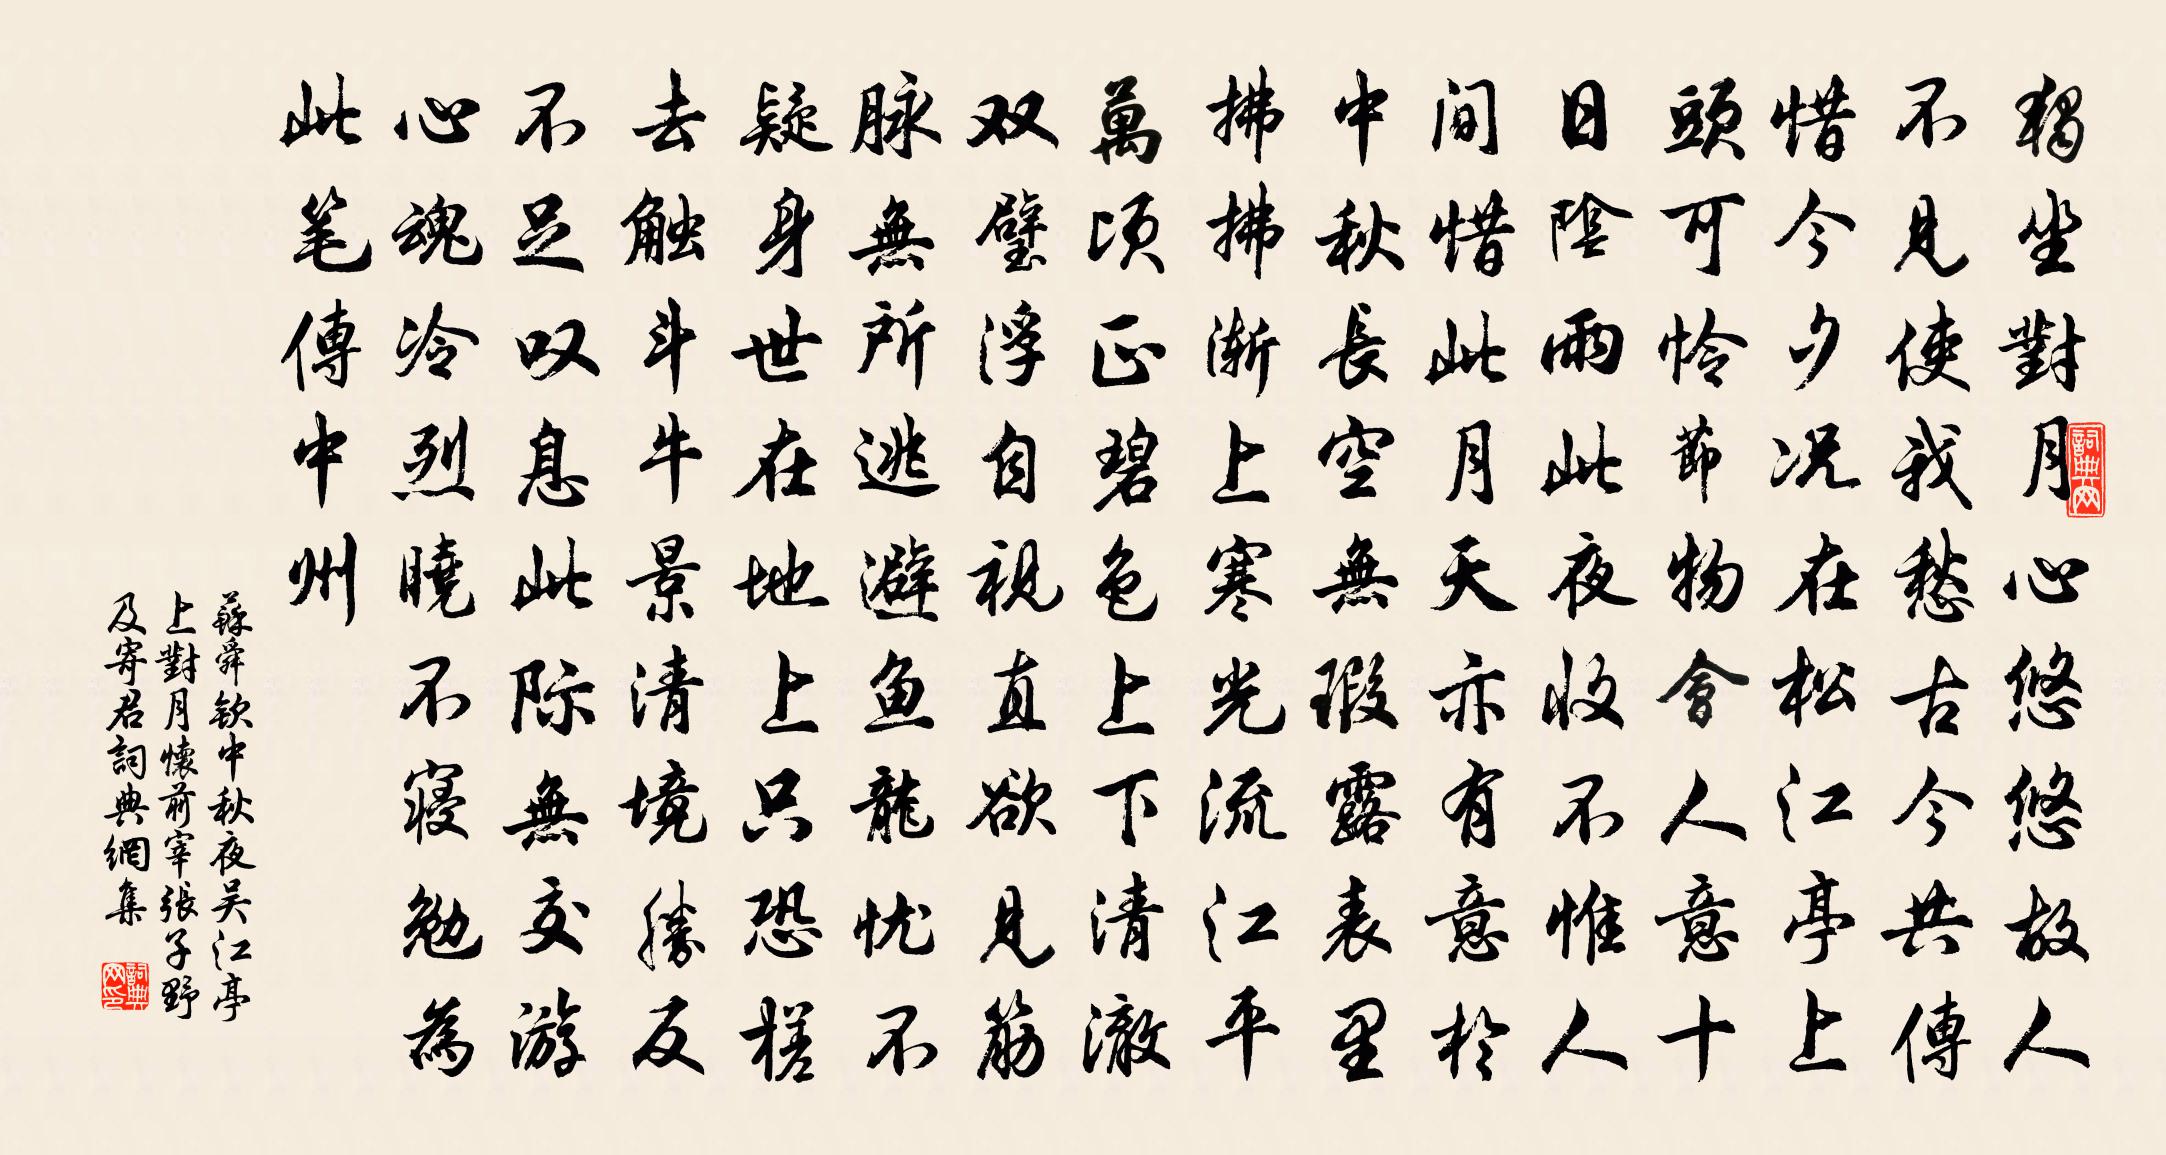 獨坐對月心悠悠故人
不見使我愁古今共傳
惜今夕况在松江亭上
頭可怜節物會人意十
日陰雨此夜收不惟人
間惜此月天亦有意於
中秋長空無瑕露表里
拂拂漸上寒光流江平
萬頃正碧色上下清澈
双璧浮自視直欲見筋
脉無所逃避鱼龍忧不
疑身世在地上只恐槎
去触斗牛景清境勝反
不足叹息此际無交游
心魂冷烈曉不寢勉為
此笔傳中州
蘇舜欽中秋夜吴江亭
上對月懷前宰張子野
及寄君詞典網集
詞典网
詞典网印